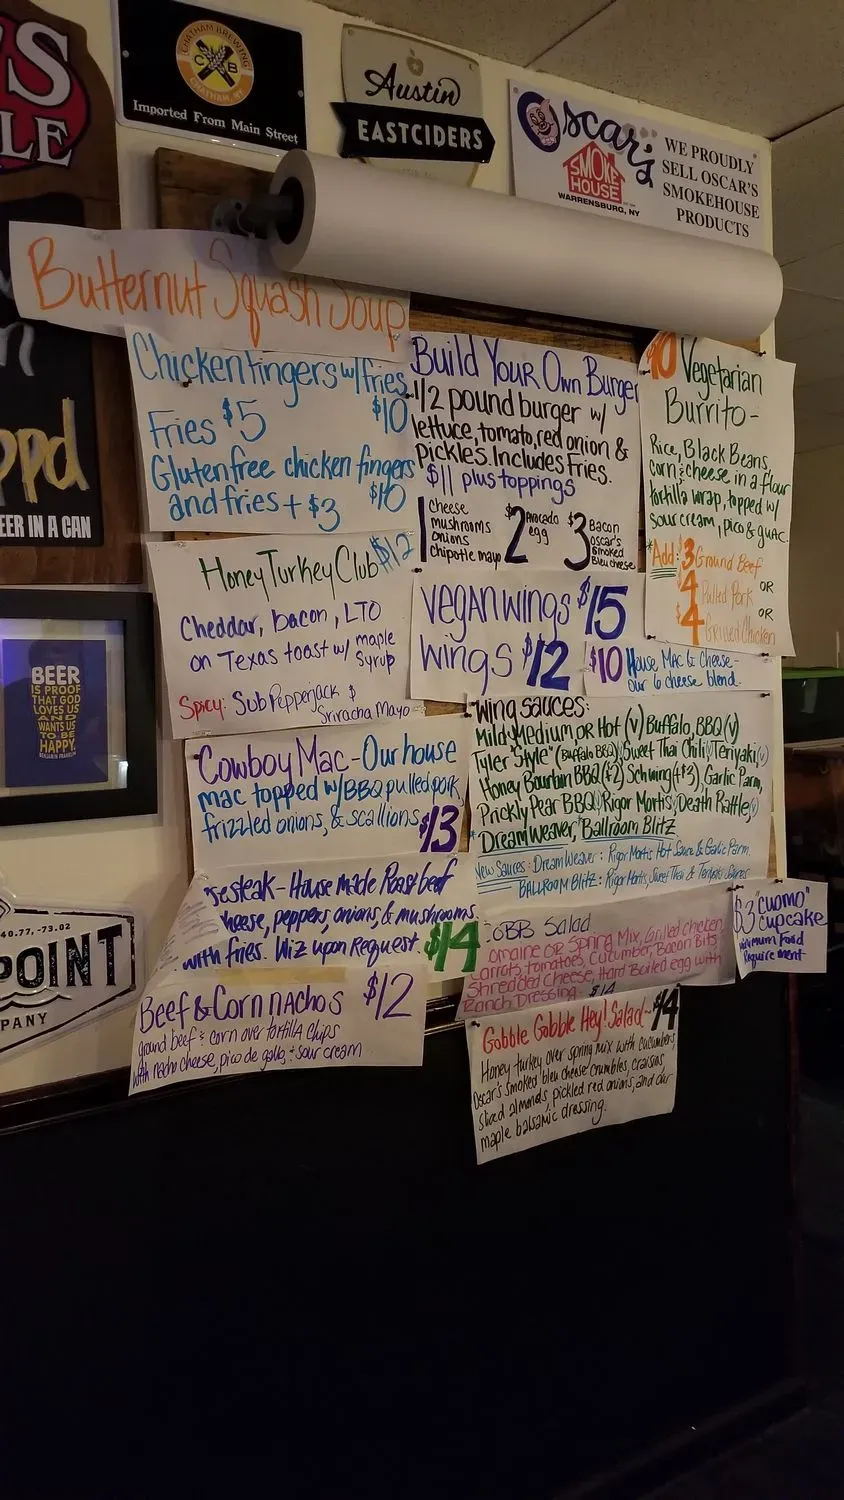 S
LE
CHATHAM BREWING
C B
CHATHAM, NY
Imported From Main Street
Austin
EASTCIDERS
Oscar's
SMOKE
HOUSE
WARRENSBURG, NY
WE PROUDLY
SELL OSCAR'S
SMOKEHOUSE
PRODUCTS
ppd
EER IN A CAN
BEER
IS PROOF
THAT GOD
LOVES US
AND
WANTS US
TO BE
HAPPY.
BENJAMIN FRANKLIN
40.77, -73.02
POINT
PANY
Butternut Squash Soup
Chicken fingers w/fries
$10
Fries $5
Gluten free chicken fingers
and fries + $3 $10
Honey Turkey Club $12
Cheddar, bacon, LTO
on Texas toast w/ maple
syrup
Spicy: Sub Pepperjack &
Sriracha Mayo
Cowboy Mac - Our house
mac topped w/BBQ pulled pork,
frizzled onions, & scallions $13
sesteak - House made Roast beef
cheese, peppers, onions, & mushrooms
with fries. Wiz upon Request $14
Beef & Corn nachos $12
ground beef & corn over tortilla chips
with nacho cheese, pico de gallo & sour cream
Build Your Own Burger
1/2 pound burger w/
lettuce, tomato, red onion &
pickles. Includes Fries.
$11 plus toppings
1 cheese
mushrooms
onions
chipotle mayo
$2 Avocado
egg
$3 Bacon
oscar's
smoked
bleu cheese
Vegan wings $15
wings $12
$10 House Mac & Cheese -
our 6 cheese blend.
Wing sauces:
Mild, Medium, or Hot (v) Buffalo, BBQ (v)
Tyler "Style" (Buffalo BBQ) Sweet Thai Chili, Teriyaki (v)
Honey Bourbon BBQ (+2) Schwing (+$3), Garlic Parm,
Prickly Pear BBQ, Rigor Mortis, Death Rattle,
*Dream Weaver, *Ballroom Blitz
New Sauces: Dream Weaver: Rigor Mortis Hot Sauce & Garlic Parm.
BALLROOM BLITZ: Rigor Mortis, Sweet Thai & Teriyaki Sauces
OBB Salad
omaine or Spring Mix, Grilled chicken
Carrots, tomatoes, Cucumber, Bacon Bits
Shredded Cheese, Hard Boiled egg with
Ranch Dressing - $14
Gobble Gobble Hey! Salad - $14
Honey turkey over spring mix with cucumbers,
Oscar's smoked bleu cheese crumbles, craisins,
sliced almonds, pickled red onions, and our
maple balsamic dressing.
$10 Vegetarian
Burrito -
Rice, Black Beans,
corn & cheese in a flour
tortilla wrap, topped w/
sour cream, pico & guac.
*Add: $3 Ground Beef
OR
$4 Pulled Pork
OR
$4 Grilled Chicken
$3 "cuomo"
cupcake
minimum food
requirement